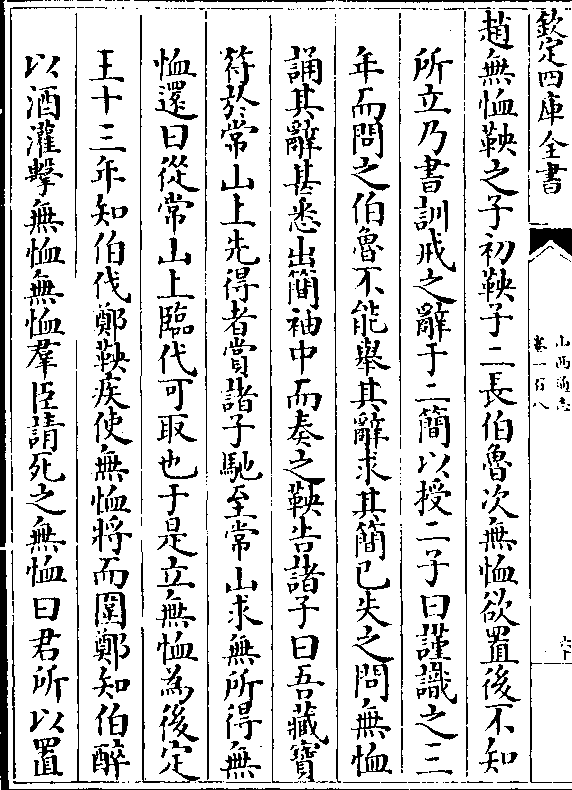 欽定四庫全書
山西通志
卷一百八
六十
趙無恤鞅之子初鞅子二長伯魯次無恤欲置後不知
所立乃書訓戒之辭于二簡以授二子曰謹識之三
年而問之伯魯不能舉其辭求其簡已失之問無恤
誦其辭甚悉出簡袖中而奏之鞅告諸子曰吾藏寶
符於常山上先得者賞諸子馳至常山求無所得無
恤還曰從常山上臨代可取也于是立無恤為後定
王十三年知伯伐鄭鞅疾使無恤將而圍鄭知伯醉
以酒灌擊無恤無恤羣臣請死之無恤曰君所以置